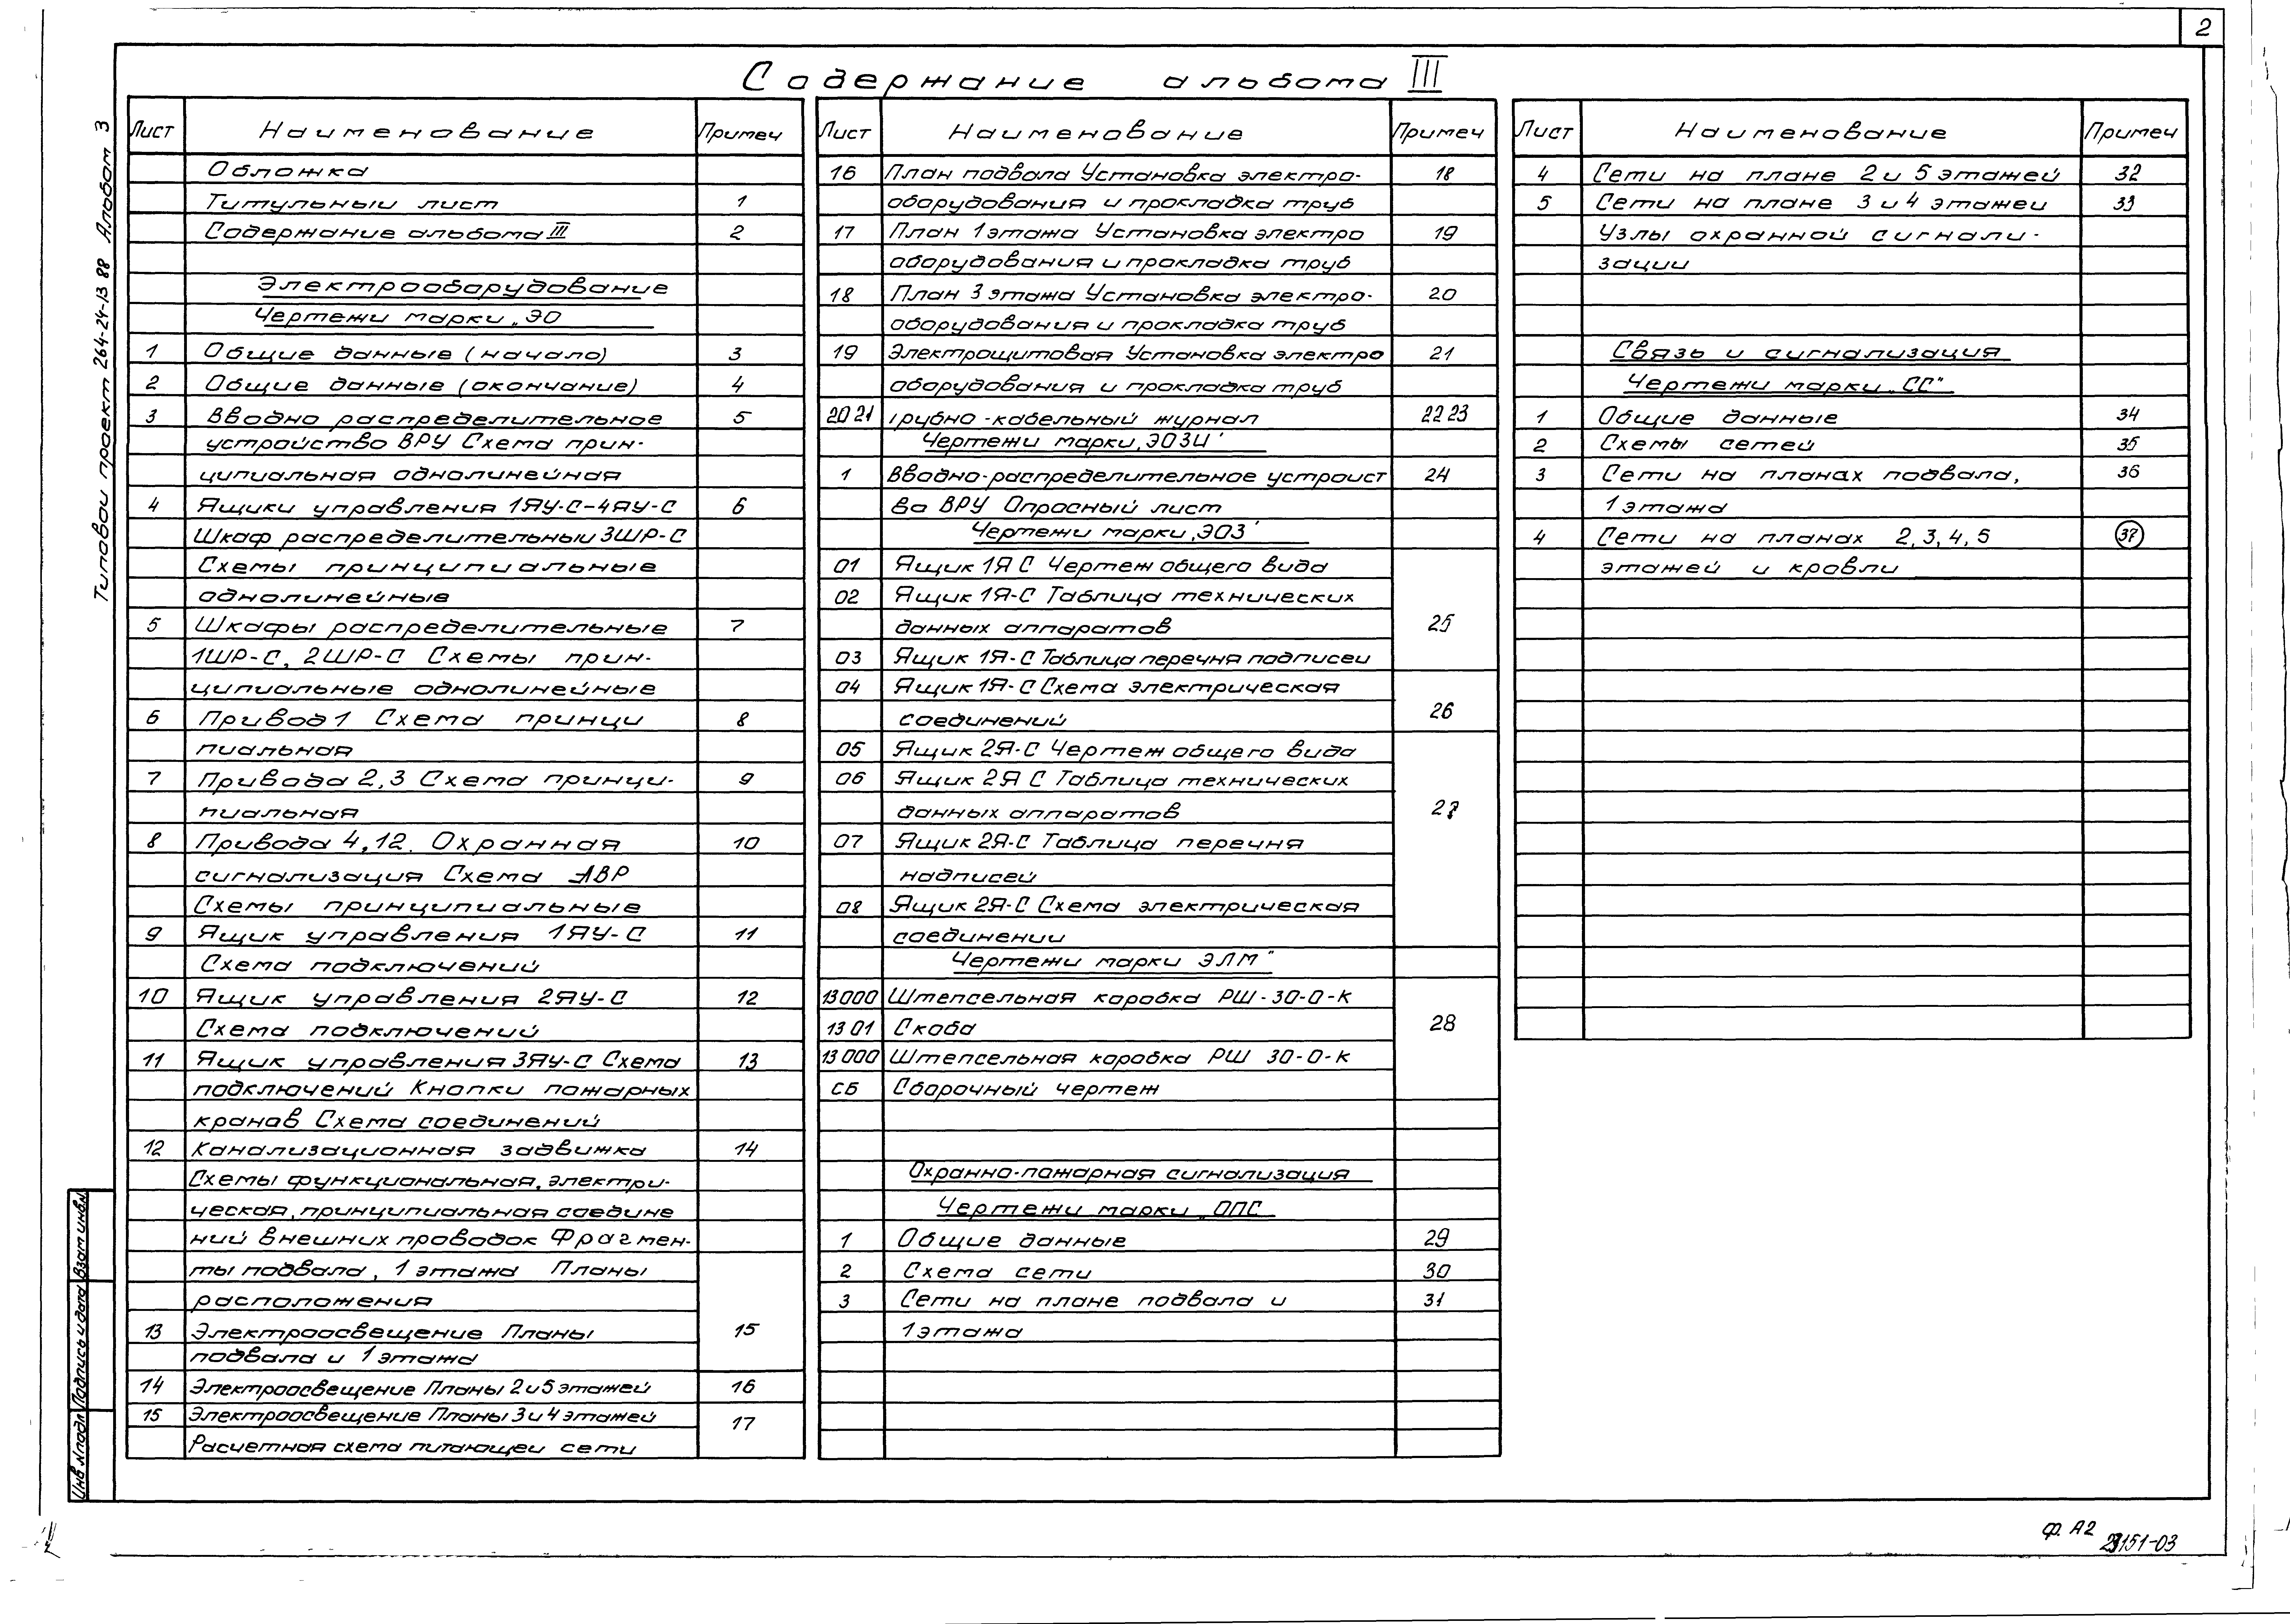 2
Содержание альбома III
Типовой проект 264-24-13 88 Альбом 3
Лист Наименование Примеч
Обложка
Титульный лист 1
Содержание альбома III 2
Электрооборудование
Чертежи марки „ЭО
1 Общие данные (начало) 3
2 Общие данные (окончание) 4
3 Вводно распределительное 5
устройство ВРУ Схема прин-
ципиальная однолинейная
4 Ящики управления 1ЯУ-С-4ЯУ-С 6
Шкаф распределительный 3ШР-С
Схемы принципиальные
однолинейные
5 Шкафы распределительные 7
1ШР-С, 2ШР-С Схемы прин-
ципиальные однолинейные
6 Привод 1 Схема принци 8
пиальная
7 Привода 2,3 Схема принци- 9
пиальная
8 Привода 4,12. Охранная 10
сигнализация Схема АВР
Схемы принципиальные
9 Ящик управления 1ЯУ-С 11
Схема подключений
10 Ящик управления 2ЯУ-С 12
Схема подключений
11 Ящик управления 3ЯУ-С Схема 13
подключений Кнопки пожарных
кранов Схема соединений
12 Канализационная задвижка 14
Схемы функциональная, электри-
ческая, принципиальная соедине
ний внешних проводок Фрагмен-
ты подвала, 1 этажа Планы
расположения
13 Электроосвещение Планы 15
подвала и 1 этажа
14 Электроосвещение Планы 2 и 5 этажей 16
15 Электроосвещение Планы 3 и 4 этажей 17
Расчетная схема питающей сети
Лист Наименование Примеч
16 План подвала Установка электро- 18
оборудования и прокладка труб
17 План 1 этажа Установка электро 19
оборудования и прокладка труб
18 План 3 этажа Установка электро- 20
оборудования и прокладка труб
19 Электрощитовая Установка электро 21
оборудования и прокладка труб
20 21 Трубно-кабельный журнал 22 23
Чертежи марки „ЭОЗИ'
1 Вводно-распределительное устройст 24
во ВРУ Опросный лист
Чертежи марки „ЭОЗ'
01 Ящик 1Я С Чертеж общего вида
02 Ящик 1Я-С Таблица технических
данных аппаратов 25
03 Ящик 1Я-С Таблица перечня надписей
04 Ящик 1Я-С Схема электрическая
соединений 26
05 Ящик 2Я-С Чертеж общего вида
06 Ящик 2Я С Таблица технических
данных аппаратов 27
07 Ящик 2Я-С Таблица перечня
надписей
08 Ящик 2Я-С Схема электрическая
соединений
Чертежи марки ЭЛМ"
13 000 Штепсельная коробка РШ-30-0-К
13 01 Скоба 28
13 000 Штепсельная коробка РШ 30-0-К
СБ Сборочный чертеж
Охранно-пожарная сигнализация
Чертежи марки „ОПС
1 Общие данные 29
2 Схема сети 30
3 Сети на плане подвала и 31
1 этажа
Лист Наименование Примеч
4 Сети на плане 2 и 5 этажей 32
5 Сети на плане 3 и 4 этажей 33
Узлы охранной сигнали-
зации
Связь и сигнализация
Чертежи марки „СС"
1 Общие данные 34
2 Схемы сетей 35
3 Сети на планах подвала, 36
1 этажа
4 Сети на планах 2,3,4,5 37
этажей и кровли
Инв.№подл Подпись и дата Взам инв.№
ф. А2
23151-03